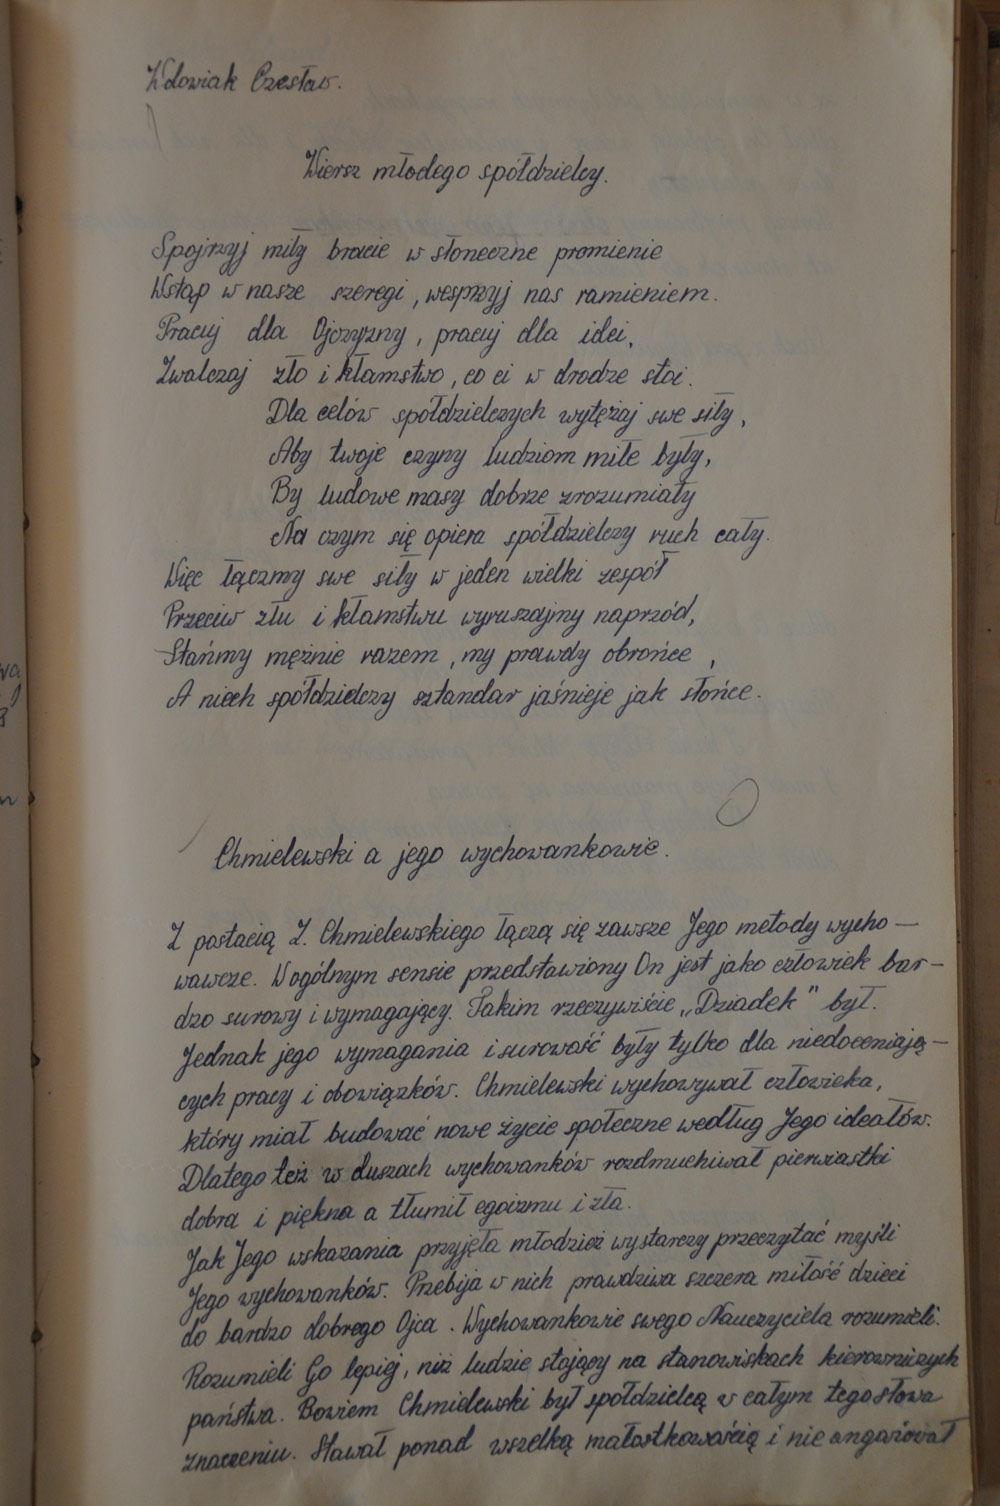 Wdowiak Czesław.
Wiersz młodego spółdzielcy.
Spojrzyj miły bracie w słoneczne promienie
Wstąp w nasze szeregi, wesprzyj nas ramieniem.
Pracuj dla Ojczyzny, pracuj dla idei,
Zwalczaj zło i kłamstwo, co ci w drodze stoi.
Dla celów spółdzielczych wytężaj swe siły,
Aby twoje czyny ludziom miłe były,
By ludowe masy dobrze zrozumiały
Na czym się opiera spółdzielczy ruch cały.
Więc łączmy swe siły w jeden wielki zespół
Przeciw złu i kłamstwu wyruszajmy naprzód,
Stańmy mężnie razem, my prawdy obrońce,
A niech spółdzielczy sztandar jaśnieje jak słońce.
Chmielewski a jego wychowankowie.
Z postacią Z. Chmielewskiego łączą się zawsze Jego metody wycho—
wawcze. W ogólnym sensie przedstawiony On jest jako człowiek bar—
dzo surowy i wymagający. Takim rzeczywiście „Dziadek" był.
Jednak jego wymagania i surowość były tylko dla niedoceniają—
cych pracy i obowiązków. Chmielewski wychowywał człowieka,
który miał budować nowe życie społeczne według Jego ideałów.
Dlatego też w duszach wychowanków rozdmuchiwał pierwiastki
dobra i piękna a tłumił egoizmu i zła.
Jak Jego wskazania przyjęła młodzież wystarczy przeczytać myśli
Jego wychowanków. Przebija w nich prawdziwa szczera miłość dzieci
do bardzo dobrego Ojca. Wychowankowie swego Nauczyciela rozumieli.
Rozumieli Go lepiej, niż ludzie stojący na stanowiskach kierowniczych
państwa. Bowiem Chmielewski był spółdzielcą w całym tego słowa
znaczeniu. Stawał ponad wszelką małostkowością i nie angażował